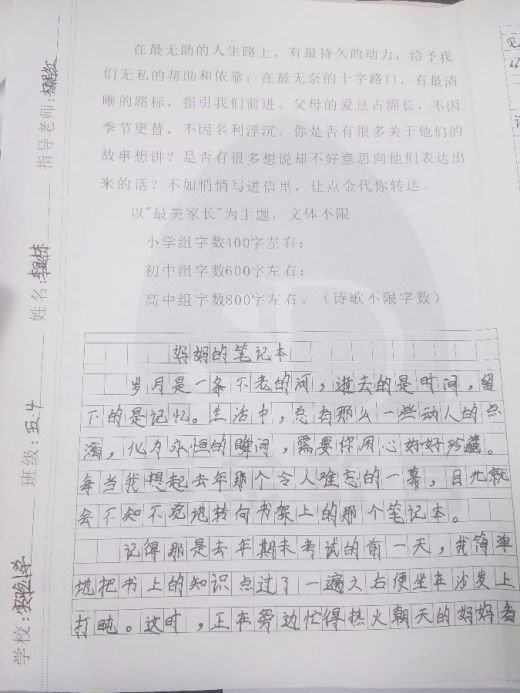 在最无助的人生路上，有最持久的动力，给予我
们无私的帮助和依靠；在最无奈的十字路口，有最清
晰的路标，指引我们前进。父母的爱亘古绵长，不因
季节更替，不因名利浮沉。你是否有很多关于他们的
故事想讲？是否有很多想说却不好意思向他们表达出
来的话？不如悄悄写进信里，让点金代你转达。
以"最美家长"为主题，文体不限
小学组字数400字左右；
初中组字数600字左右；
高中组字数800字左右。（诗歌不限字数）
妈妈的笔记本
岁月是一条不老的河，逝去的是时间，留
下的是记忆。生活中，总有那么一些动人的点
滴，化为永恒的瞬间，需要你用心好好珍藏。
每当我想起去年那个令人难忘的一幕，目光就
会不知不觉地转向书架上的那个笔记本。
记得那是去年期末考试的前一天，我简单
地把书上的知识点过了一遍之后便坐在沙发上
打盹。这时，正在旁边忙得热火朝天的妈妈看
学校：实验小学 班级：五.4 姓名： 指导老师：